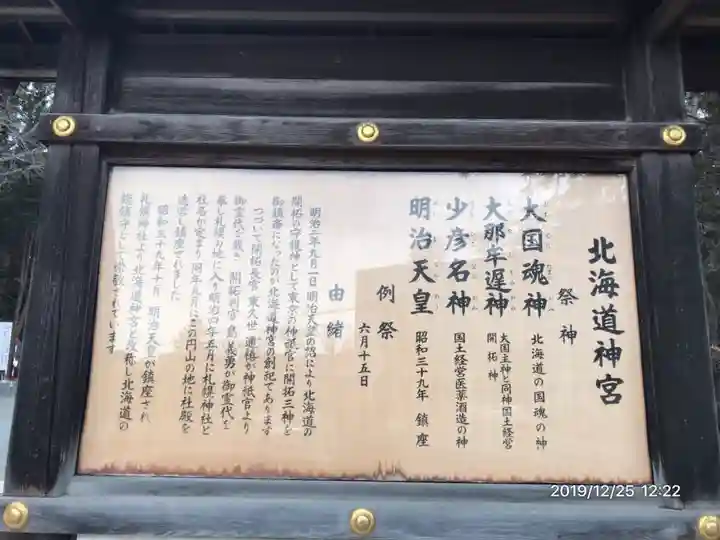 北海道神宮
祭神
大国魂神 北海道の国魂の神
大那牟遅神 大国主神と同神国土経営
開拓神
少彦名神 国土経営医薬酒造の神
明治天皇 昭和三十九年 鎮座
例祭
六月十五日
由緒
明治二年九月一日明治天皇の詔により北海道の
開拓の守護神として東京の神祇官に開拓三神を
御鎮斎になったのが北海道神宮の創祀であります
つづいて開拓長官 東久世通禧が神祇官より
御霊代を戴き 開拓判官 島義勇が御霊代を
奉じ札幌の地に入り明治四年五月に札幌神社と
社名が定まり同年九月にこの円山の地に社殿を
造営し鎮座できました
昭和三十九年十月 明治天皇が鎮座され
札幌神社より北海道神宮と改称し北海道の
総鎮守として崇敬されています
2019/12/25 12:22